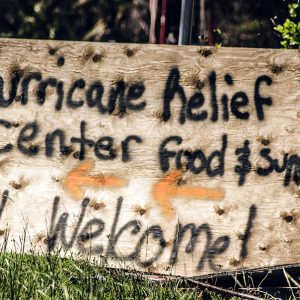 Hurricane Relief
Center Food & Sup
All Welcome!